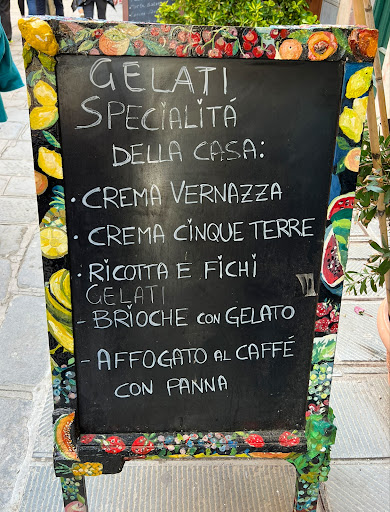 GELATI
SPECIALITÁ
DELLA CASA:
• CREMA VERNAZZA
• CREMA CINQUE TERRE
• RICOTTA E FICHI
GELATI
- BRIOCHE CON GELATO
- AFFOGATO AL CAFFÉ
CON PANNA